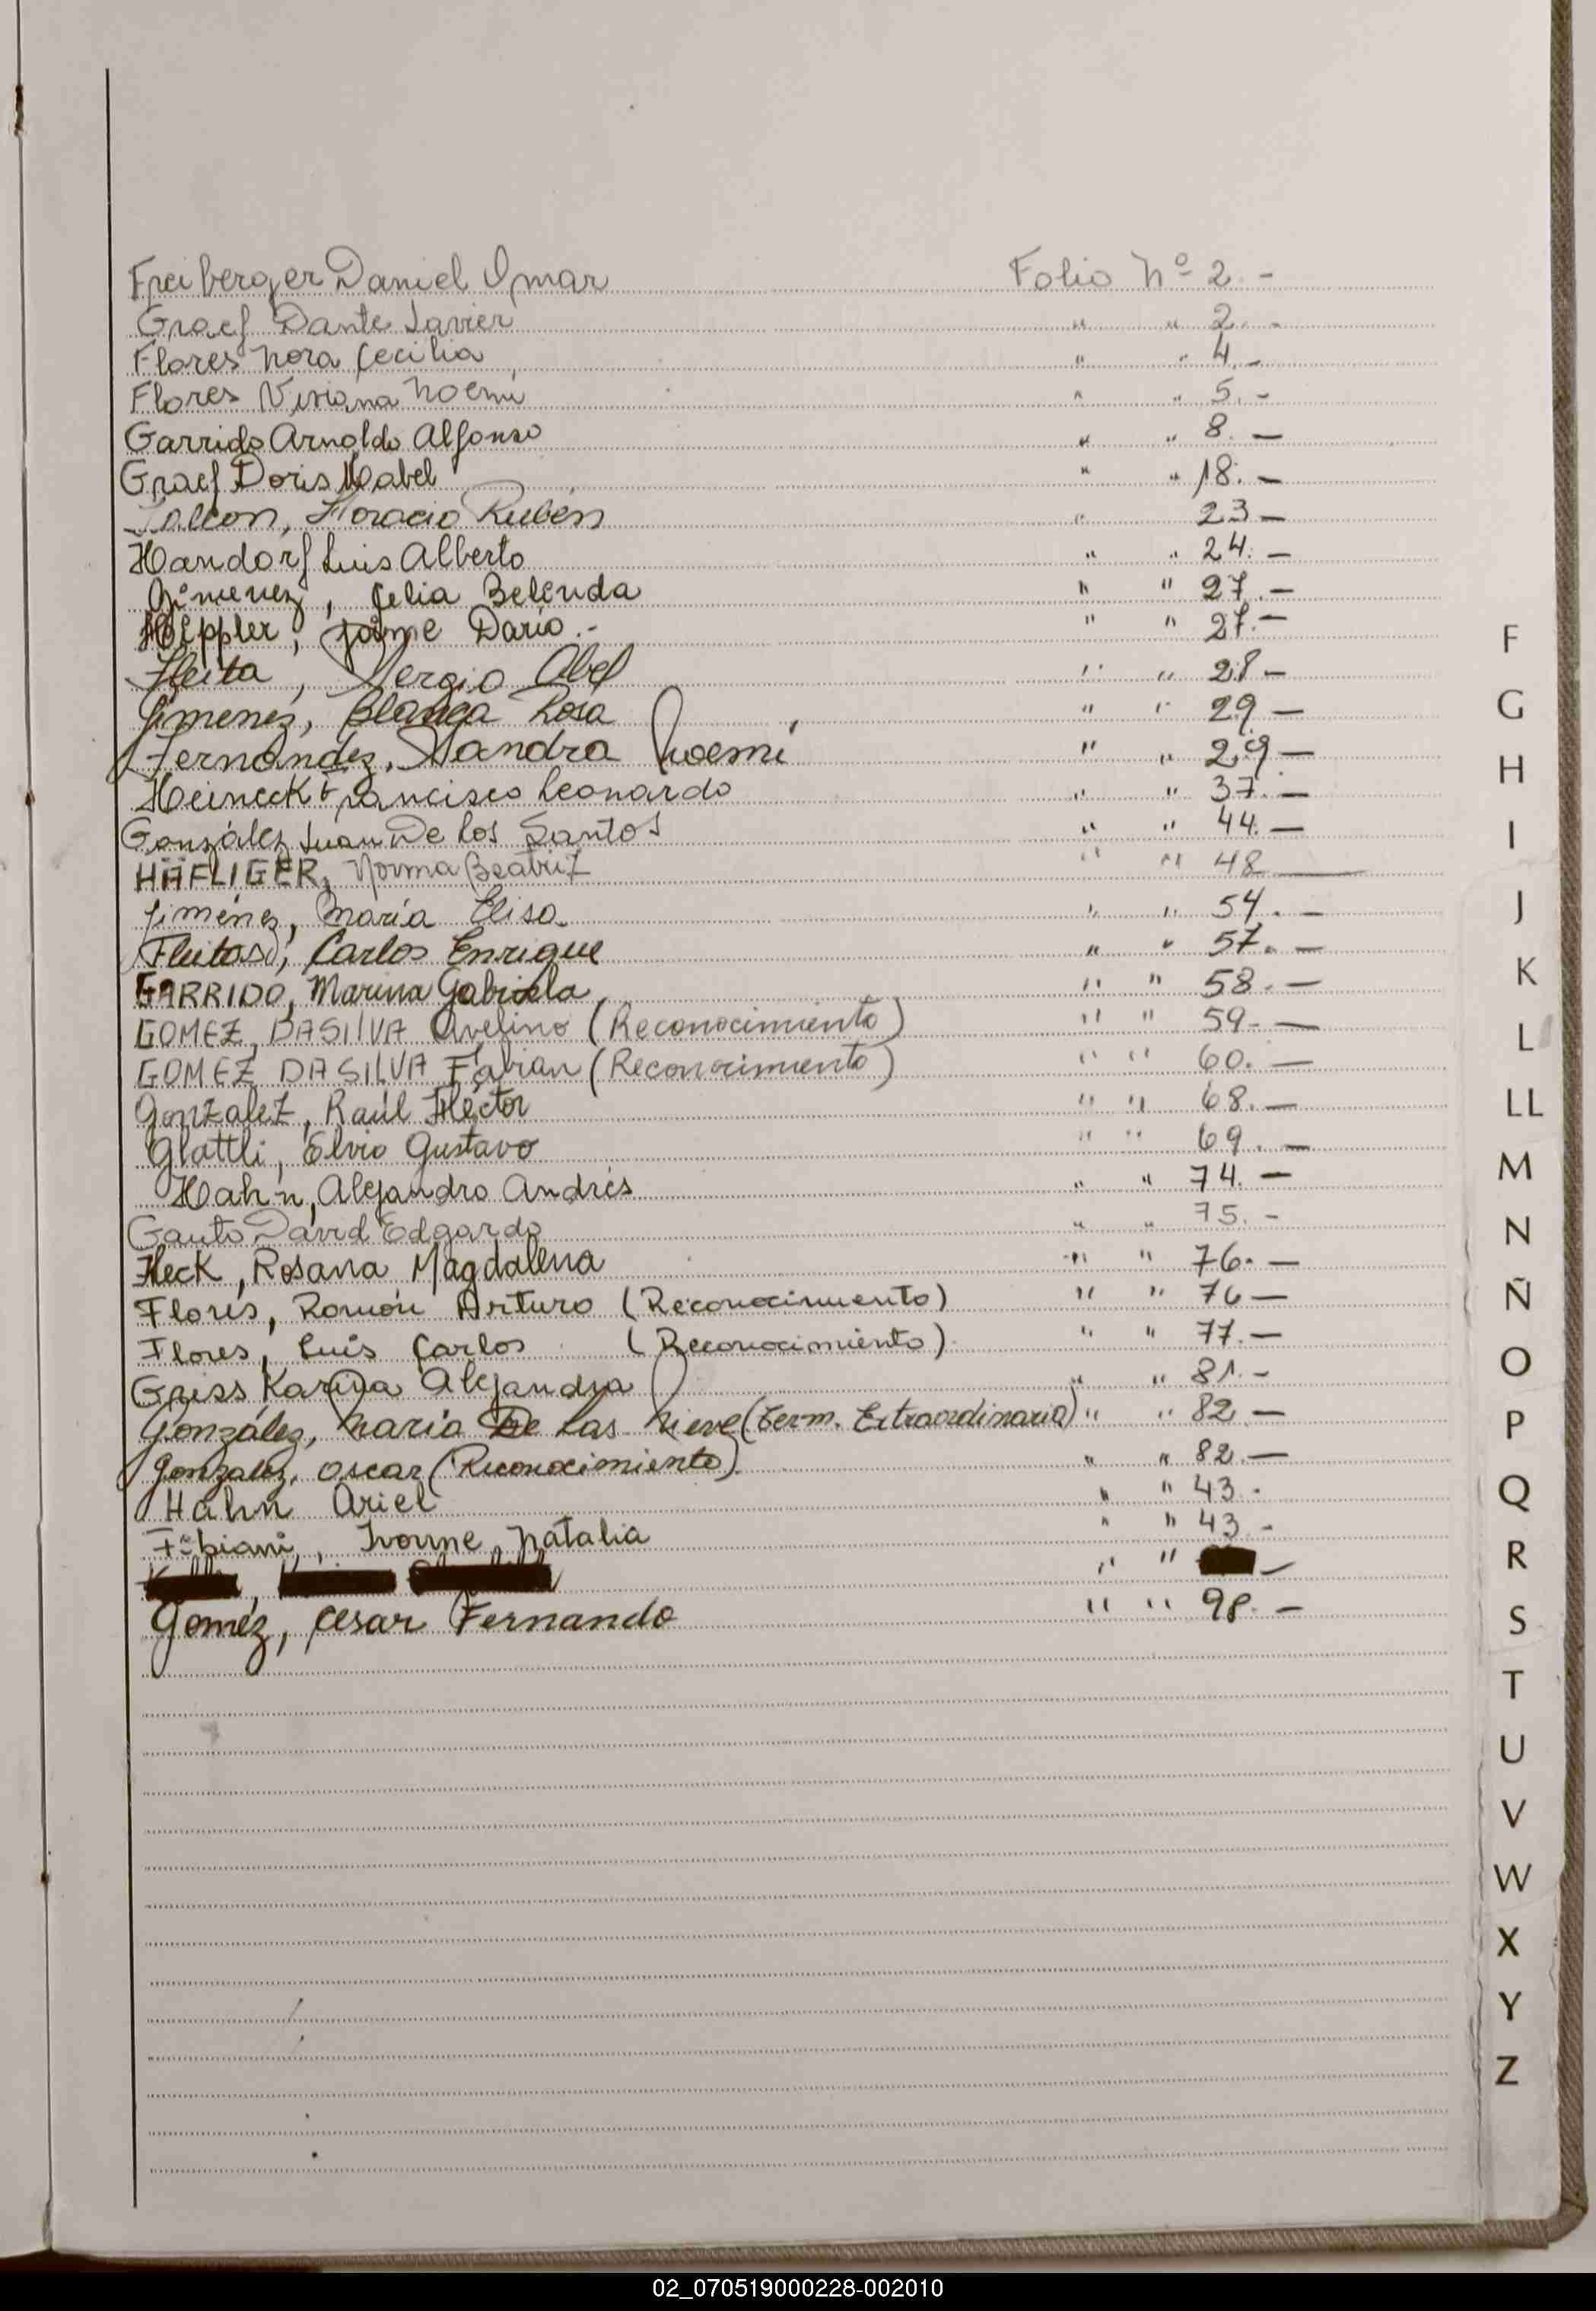 Freiberger Daniel Omar Folio Nº 2.-
Graef Dante Javier " " 2.-
Flores Nora Cecilia " " 4.-
Flores Viviana Noemí " " 5.-
Garrido Arnoldo Alfonso " " 8.-
Graef Doris Mabel " " 18.-
Falcon, Horacio Rubén " 23-
Handorf Luis Alberto " " 24.-
Gimenez, Celia Belinda " " 27.-
Hoeppler, Jaime Dario.- " " 27.-
Fleita, Sergio Abel " " 28-
Gimenez, Blanca Rosa " " 29-
Fernandez, Sandra Noemí " " 29-
Heineck Francisco Leonardo " " 37.-
González Juan De Los Santos " " 44.-
HÄFLIGER, Norma Beatriz " " 48-
Jiménez, María Elisa " " 54.-
Fleitas, Carlos Enrique " " 57.-
GARRIDO, Marina Gabriela " " 58.-
GOMEZ, DASILVA Avelino (Reconocimiento) " " 59.-
GOMEZ DASILVA Fabian (Reconocimiento) " " 60.-
Gonzalez, Raúl Héctor " " 68.-
Glattli, Elvio Gustavo " " 69.-
Hahn, Alejandro Andrés " " 74.-
Gauto David Edgardo " " 75.-
Heck, Rosana Magdalena " " 76.-
Flores, Ramón Arturo (Reconocimiento) " " 76-
Flores, Luis Carlos (Reconocimiento). " " 77.-
Griss Karina Alejandra " " 81.-
González, María De Las Nieve (term. Extraordinaria) " " 82.-
Gonzalez, Oscar (Reconocimiento). " " 82.-
Hahn Ariel " " 43.-
Fabiani, Ivonne Natalia " " 43.-
, " " -
Goméz, Cesar Fernando " " 98.-
F
G
H
I
J
K
L
LL
M
N
Ñ
O
P
Q
R
S
T
U
V
W
X
Y
Z
02_070519000228-002010